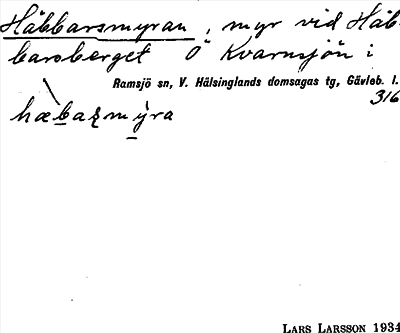 Häbbarsmyran, myr vid Häb-
barsberget Ö Kvarnsjön i
Ramsjö sn, V. Hälsinglands domsagas tg, Gävleb. l.
316
hæbaʐmýra
LARS LARSSON 1934